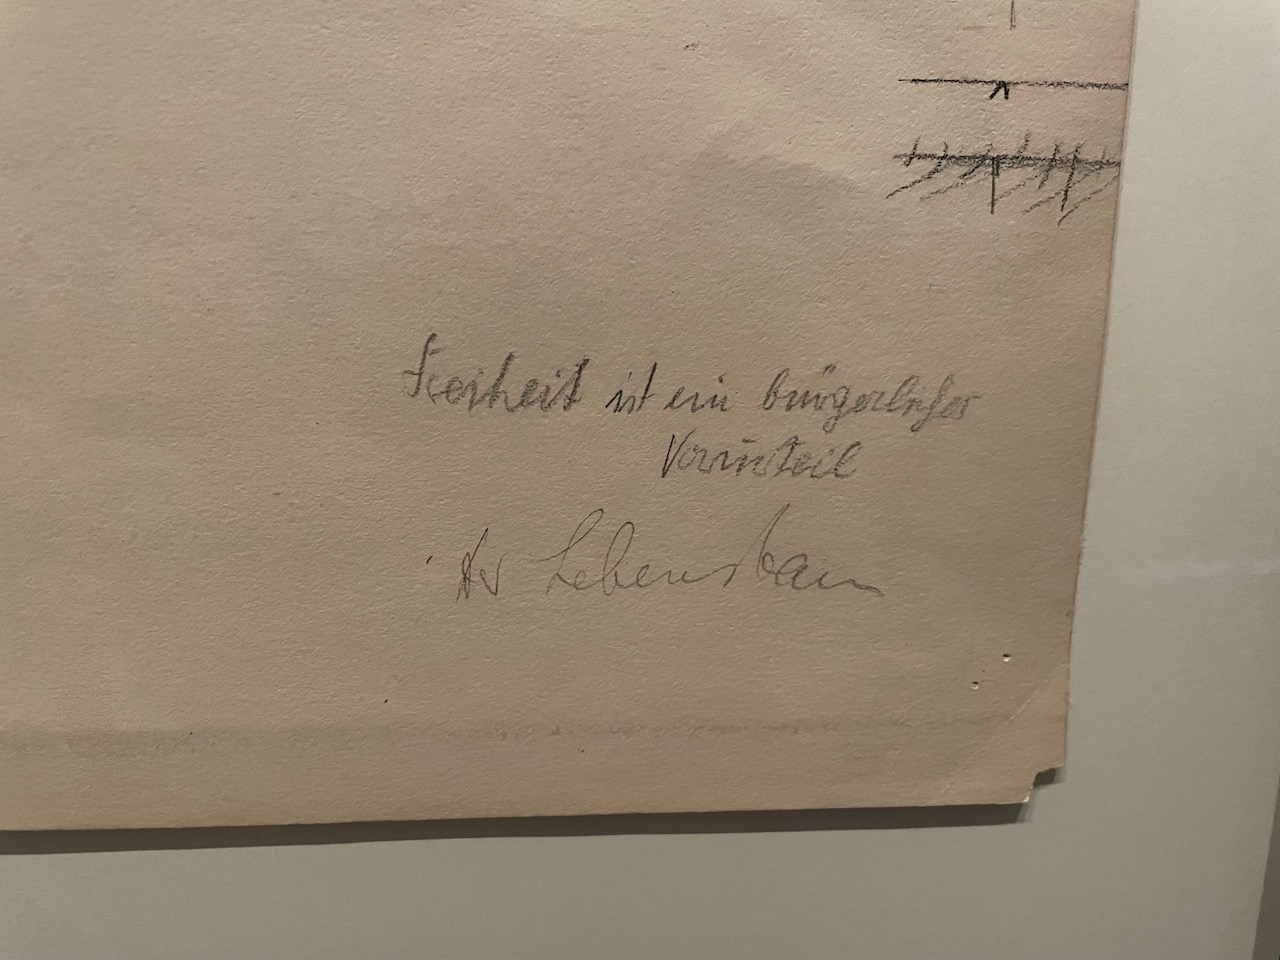 Freiheit ist ein bürgerliches
Vorurteil
der Lebensbaum